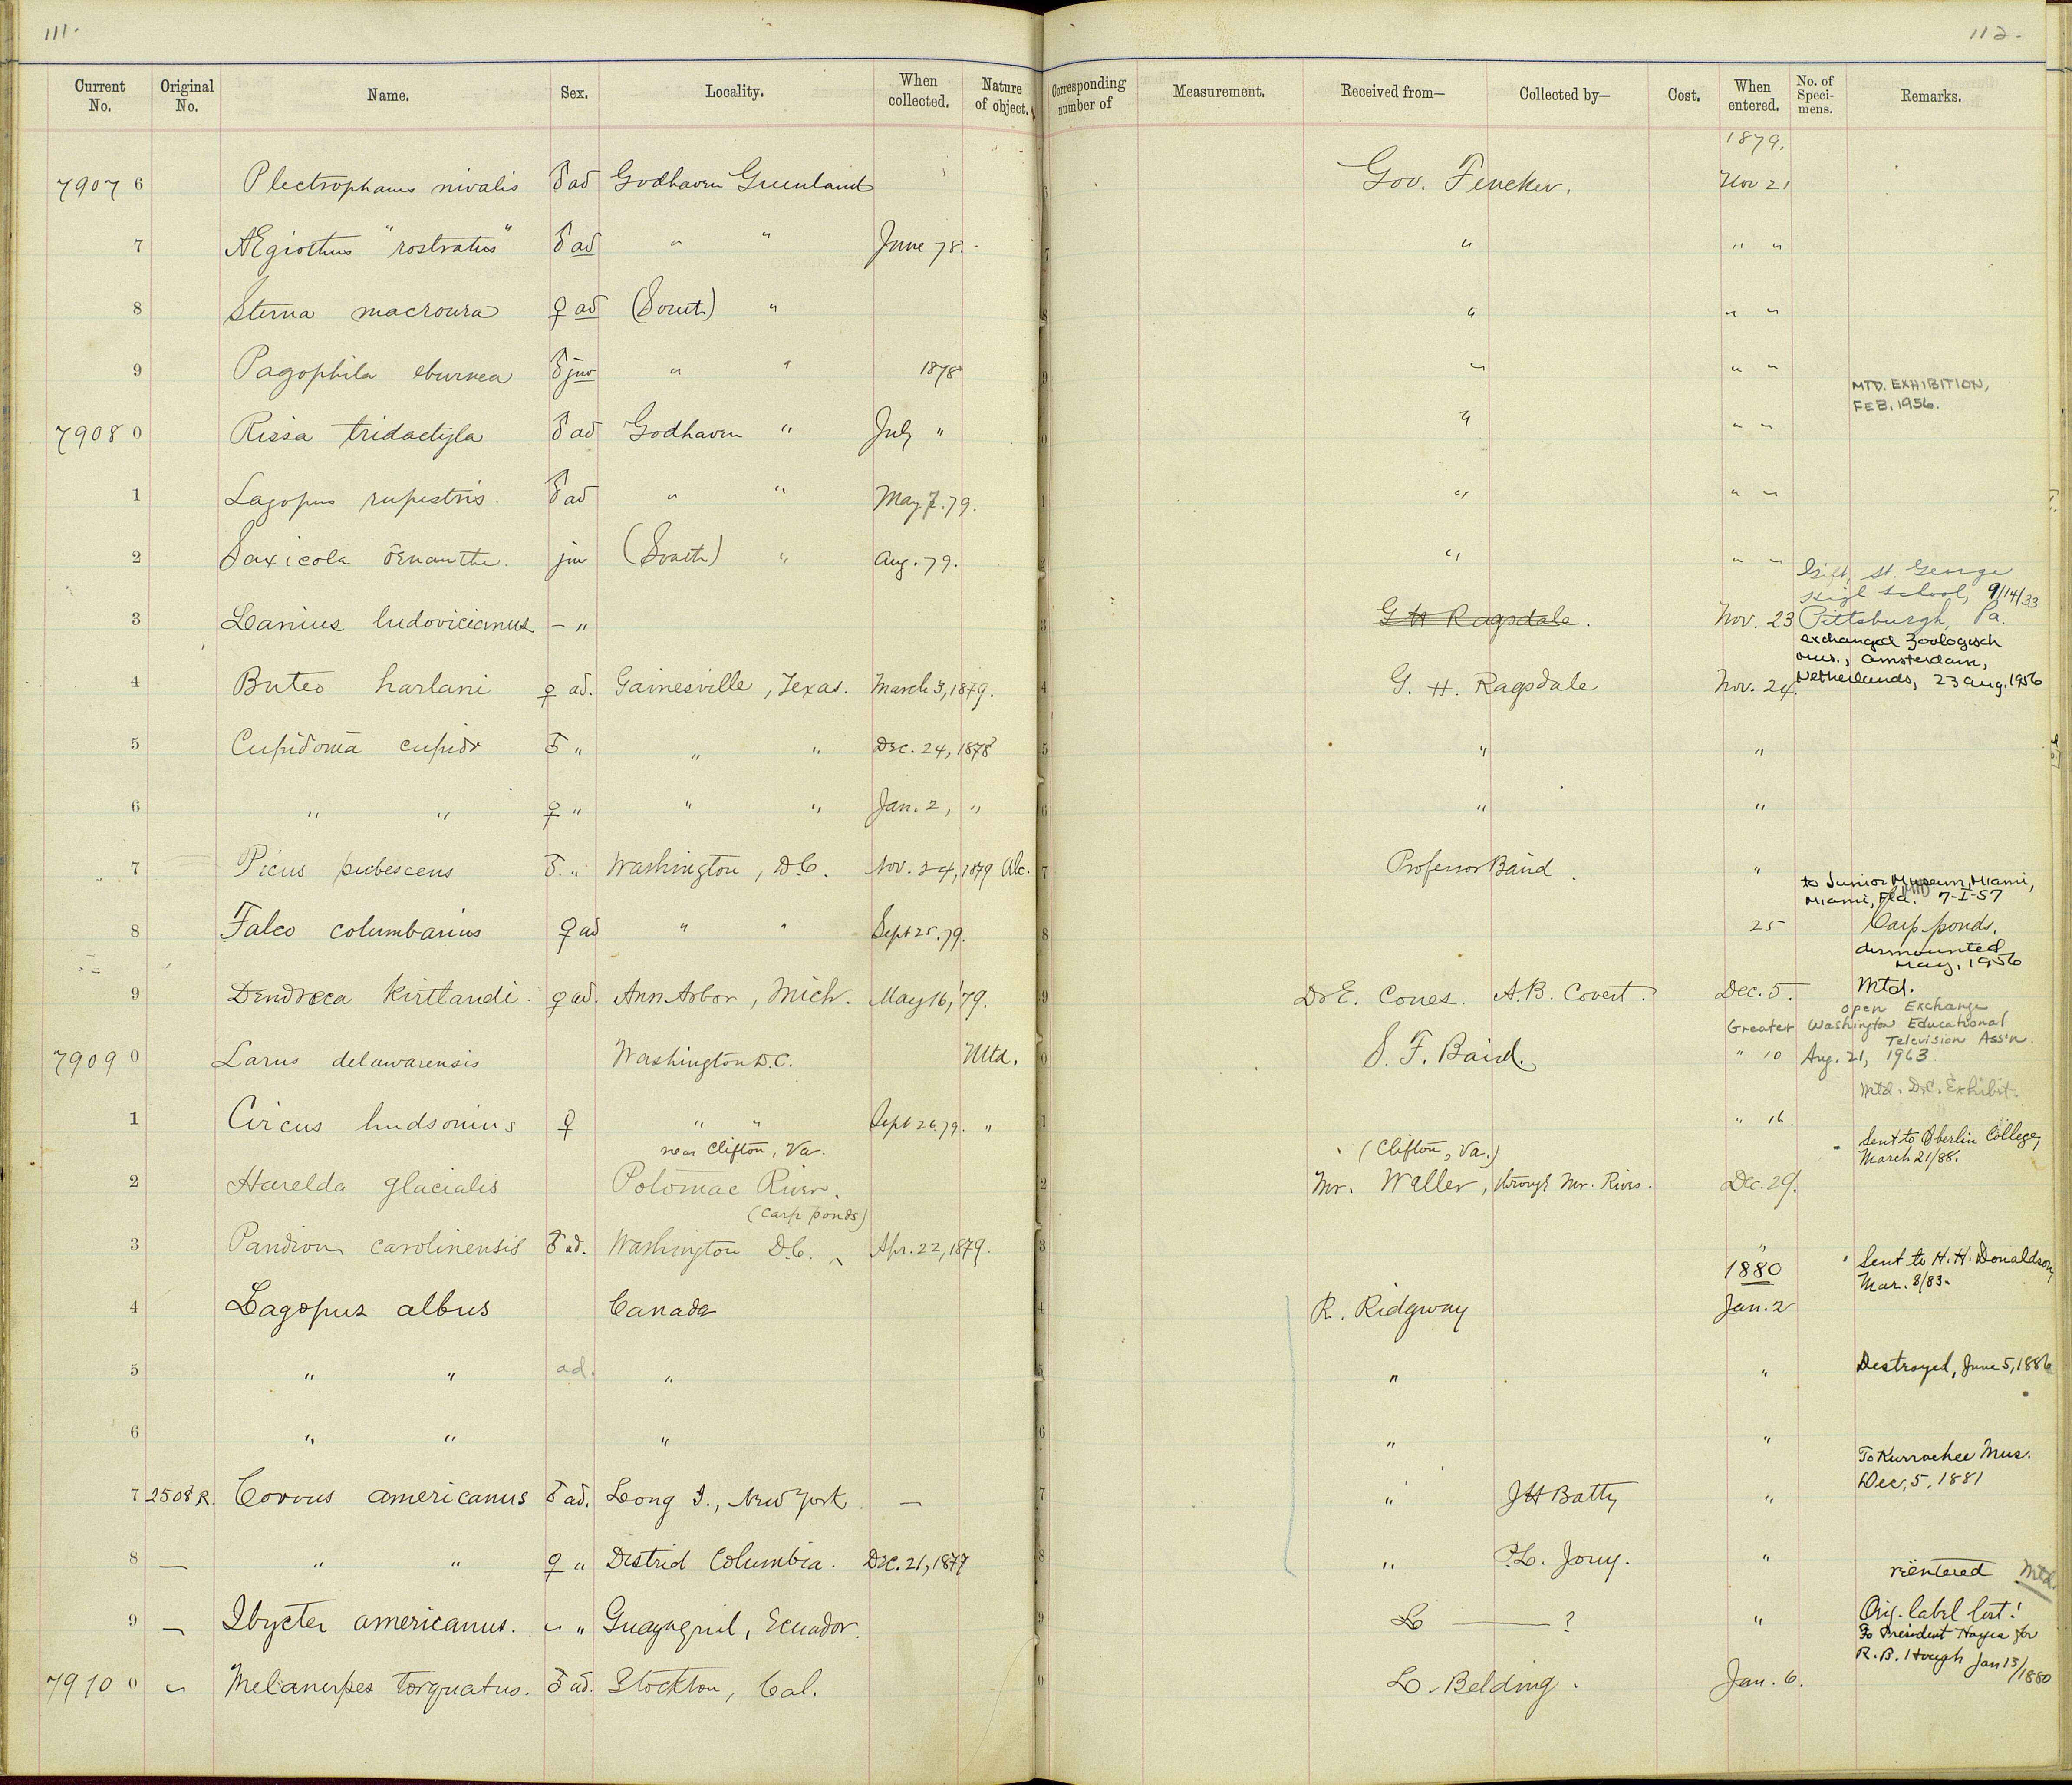 111.
112.
Current No. Original No. Name. Sex. Locality. When collected. Nature of object. Corresponding number of Measurement. Received from— Collected by— Cost. When entered. No. of Speci-mens. Remarks.
1879.
7907 6 Plectrophanes nivalis ♂ ad Godhaven Greenland Gov. Fencker. Nov 21
7 Ægiothus "rostratus" ♂ ad " " June 78. " " "
8 Sterna macroura ♀ ad (South) " " " "
9 Pagophila eburnea ♂ juv " " 1878 " " "
MTD. EXHIBITION,
FEB. 1956.
7908 0 Rissa tridactyla ♂ ad Godhaven " July " " " "
1 Lagopus rupestris. ♂ ad " " May 7. 79. " " "
2 Saxicola œnanthe. juv (South) " Aug. 79. " " "
Gift, St. George
High School, 9/14/33
3 Lanius ludovicianus — " G H Ragsdale. Nov. 23 Pittsburgh, Pa.
exchanged Zoologisch
Mus., Amsterdam,
Netherlands, 23 Aug. 1956
4 Buteo harlani ♀ ad. Gainesville, Texas. March 3, 1879. G. H. Ragsdale Nov. 24.
5 Cupidonia cupido ♂ " " " Dec. 24, 1878 " "
6 " " ♀ " " " Jan. 2, " " "
7 Picus pubescens ♂ " Washington, D.C. Nov. 24, 1879 Alc. Professor Baird. "
to Junior Museum, Miami,
Miami, Fla. 7-I-57
8 Falco columbarius ♀ ad " " Sept 25. 79. 25 Carp ponds.
dismounted
May, 1956
9 Dendrœca Kirtlandi. ♀ ad. Ann Arbor, Mich. May 16, '79. Dr E. Coues. A. B. Covert. Dec. 5. Mtd.
open Exchange
Greater Washington Educational
Television Ass'n.
7909 0 Larus delawarensis Washington D.C. Mtd. S. F. Baird. " 10 Aug. 21, 1963.
Mtd. D.C. Exhibit.
1 Circus hudsonius ♀ " " Sept 26. 79. " " 16.
near Clifton, Va. (Clifton, Va.)
Sent to Oberlin College,
March 21/88.
2 Harelda glacialis Potomac River. Mr. Waller, through Mr. Rives. Dec. 29.
(Carp ponds)
3 Pandion carolinensis ♂ ad. Washington D.C. Apr. 22, 1879. "
1880
Sent to H. H. Donaldson,
Mar. 8/83.
4 Lagopus albus Canada R. Ridgway Jan. 2
5 " " ad. " " " Destroyed, June 5, 1886
6 " " " " "
To Kurrachee Mus.
Dec, 5, 1881
7 2508 R. Corvus americanus ♂ ad. Long I., New York. — " J H Batty "
8 — " " ♀ " District Columbia. Dec. 21, 1877 " P. L. Jouy. "
rëentered Mtd.
9 — Ibycter americanus. " " Guayaquil, Ecuador. ? " Orig. label lost!
To President Hayes for
R. B. Hough Jan 13/1880
7910 0 Melanerpes torquatus. ♂ ad. Stockton, Cal. L. Belding. Jan. 6.